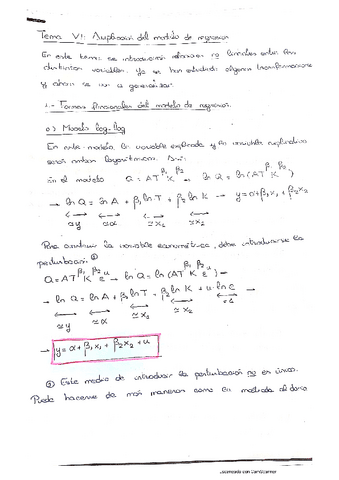 Tema VI: Ampliación del modelo de regresión
En este tema se introducirán relaciones no lineales entre las
distintas variables. Ya se han estudiado algunas transformaciones
y ahora se van a generalizar.
1.- Formas funcionales del modelo de regresión.
a) Modelo log-log
En este modelo, la variable explicada y la variable explicativa
serán ambas logarítmicas. Así:
En el modelo Q = AT^β₁ K^β₂ → ln Q = ln (AT^β₁ K^β₂)
→ ln Q = ln A + β₁ ln T + β₂ ln K → y = α + β₁x₁ + β₂x₂
≈y ≈α ≈x₁ ≈x₂
Para construir la variable econométrica, debe introducirse la
perturbación ①
Q = AT^β₁ K^β₂ e^u → ln Q = ln (AT^β₁ K^β₂ e^u) →
→ ln Q = ln A + β₁ ln T + β₂ ln K + u · ln e →
≈y ≈α ≈x₁ ≈x₂ =1
→ y = α + β₁x₁ + β₂x₂ + u
① Este medio de introducir la perturbación no es único.
Puede hacerse de más maneras como
Escaneado con CamScanner